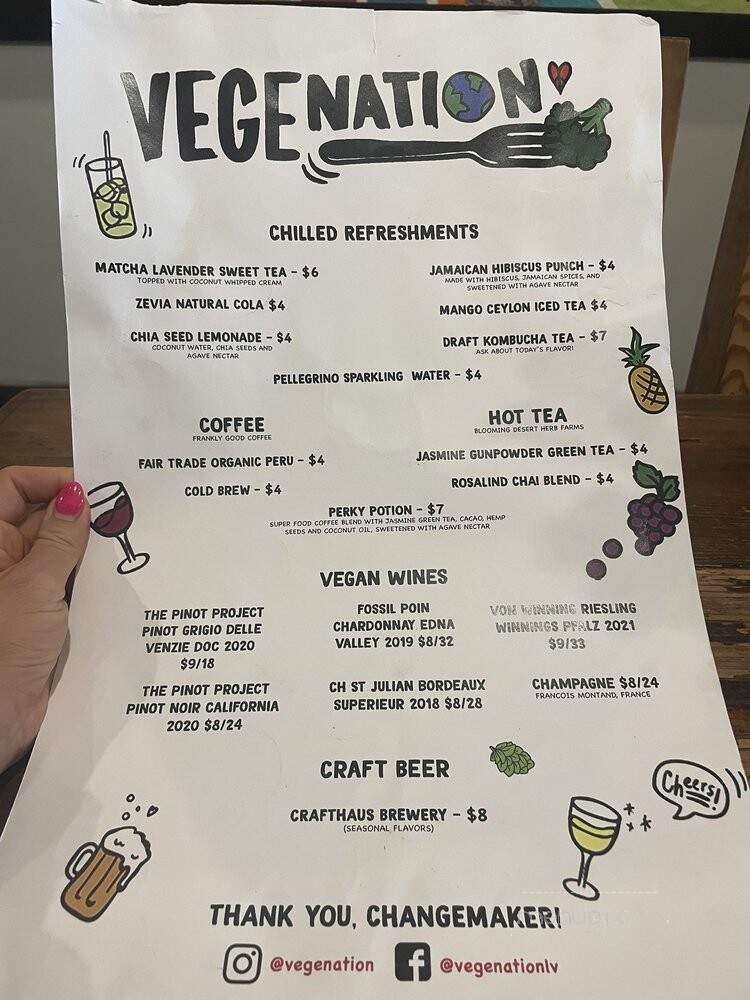 VEGENATION
CHILLED REFRESHMENTS
MATCHA LAVENDER SWEET TEA - $6
TOPPED WITH COCONUT WHIPPED CREAM
ZEVIA NATURAL COLA $4
CHIA SEED LEMONADE - $4
COCONUT WATER, CHIA SEEDS AND
AGAVE NECTAR
JAMAICAN HIBISCUS PUNCH - $4
MADE WITH HIBISCUS, JAMAICAN SPICES, AND
SWEETENED WITH AGAVE NECTAR
MANGO CEYLON ICED TEA $4
DRAFT KOMBUCHA TEA - $7
ASK ABOUT TODAY'S FLAVOR!
PELLEGRINO SPARKLING WATER - $4
COFFEE
FRANKLY GOOD COFFEE
FAIR TRADE ORGANIC PERU - $4
COLD BREW - $4
HOT TEA
BLOOMING DESERT HERB FARMS
JASMINE GUNPOWDER GREEN TEA - $4
ROSALIND CHAI BLEND - $4
PERKY POTION - $7
SUPER FOOD COFFEE BLEND WITH JASMINE GREEN TEA, CACAO, HEMP
SEEDS AND COCONUT OIL, SWEETENED WITH AGAVE NECTAR
VEGAN WINES
THE PINOT PROJECT
PINOT GRIGIO DELLE
VENZIE DOC 2020
$9/18
FOSSIL POIN
CHARDONNAY EDNA
VALLEY 2019 $8/32
VON WINNING RIESLING
WINNINGS PFALZ 2021
$9/33
THE PINOT PROJECT
PINOT NOIR CALIFORNIA
2020 $8/24
CH ST JULIAN BORDEAUX
SUPERIEUR 2018 $8/28
CHAMPAGNE $8/24
FRANCOIS MONTAND, FRANCE
CRAFT BEER
CRAFTHAUS BREWERY - $8
(SEASONAL FLAVORS)
Cheers!
THANK YOU, CHANGEMAKER!
@vegenation
@vegenationlv